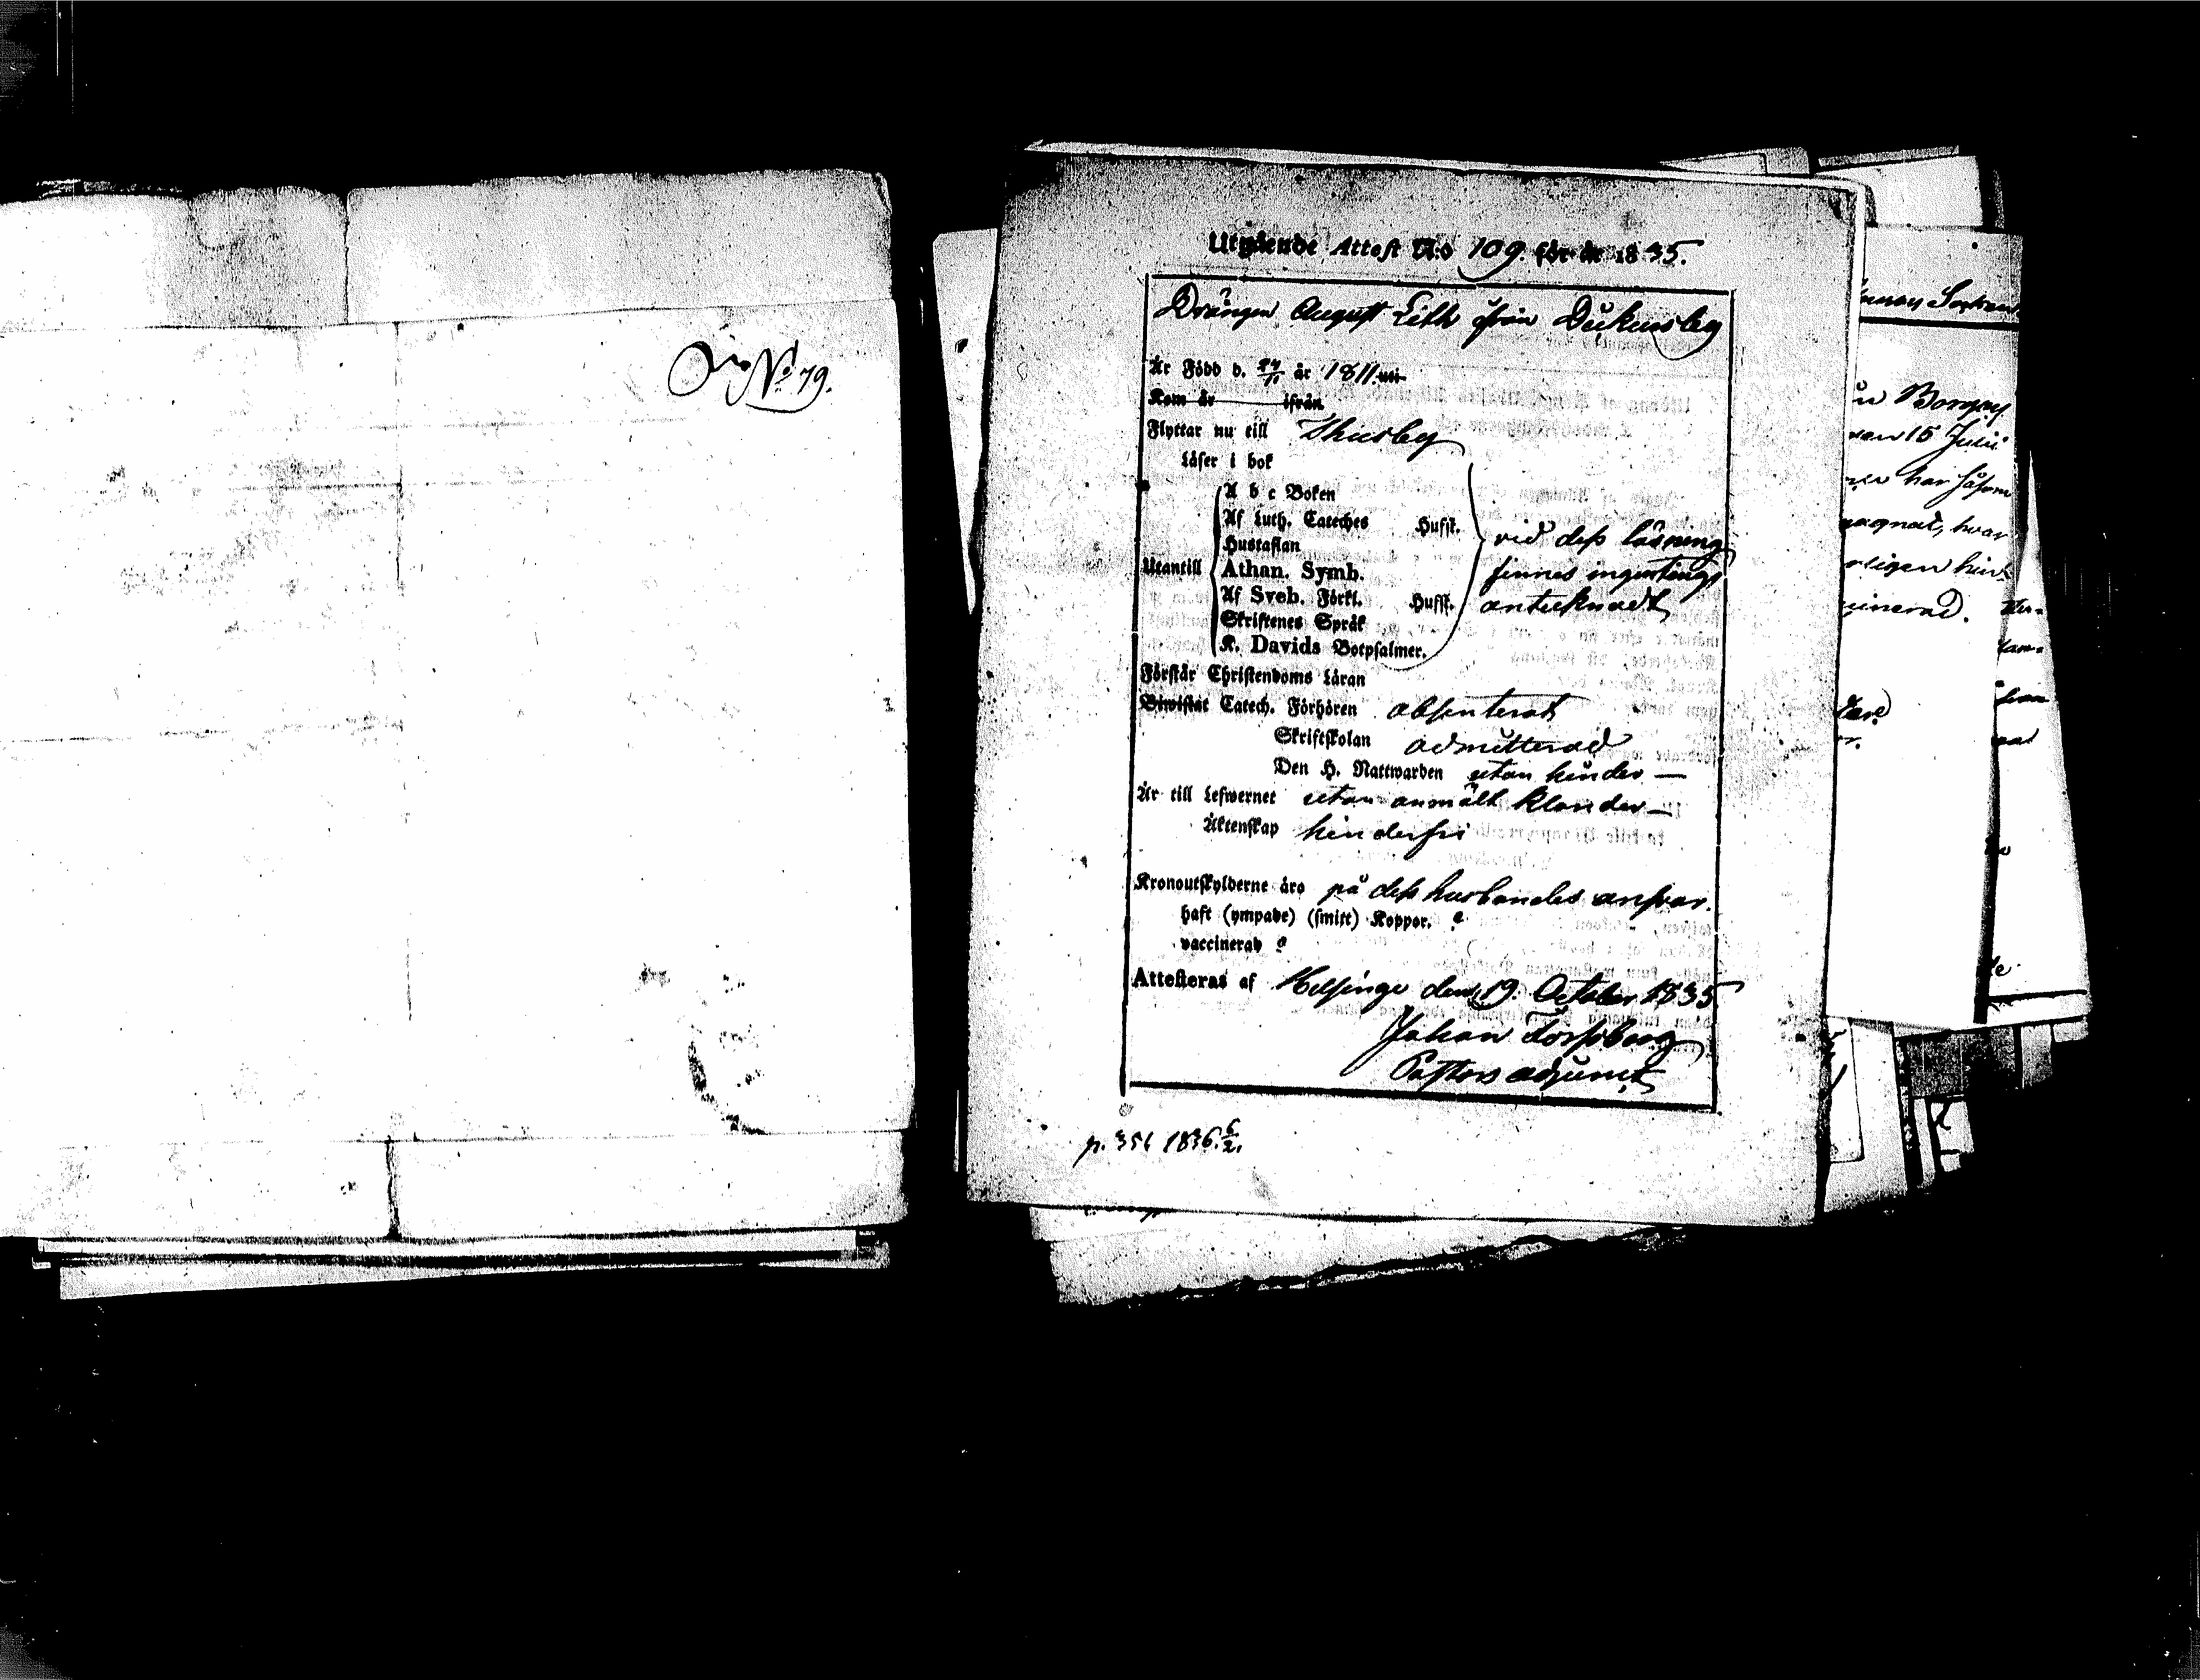 No 79.
Utgående Attest N:o 109. för år 1835.
Drängen August Lith från Dickursby
År Född d. 27/11 år 1811 uti
Kom år ifrån
Flyttar nu till Thusby
Läser i bok
A b c Boken
Af Luth. Cateches Hufst.
Hustaflan
Utantill Athan. Symb.
Af Sveb. Förkl. Hufst.
Skriftenes Språk
K. Davids Botpsalmer.
vid dess läsning
finnes ingenting
antecknadt
Förstår Christendoms Läran
Biwistat Catech. Förhören absenterat
Skriftskolan admitterad
Den H. Nattwarden utan hinder —
Är till Lefwernet utan anmält klander —
Äktenskap hinderfri
Kronoutskylderne äro på dess husbondes ansvar.
haft (ympade) (smitt) Koppor. ?
vaccinerad ?
Attesteras af Helsinge den 19. October 1835
Johan Forssberg
Pastors adjunct
p. 351 1836. 6/2.
Borgå
15 Julii
har såsom
hvar